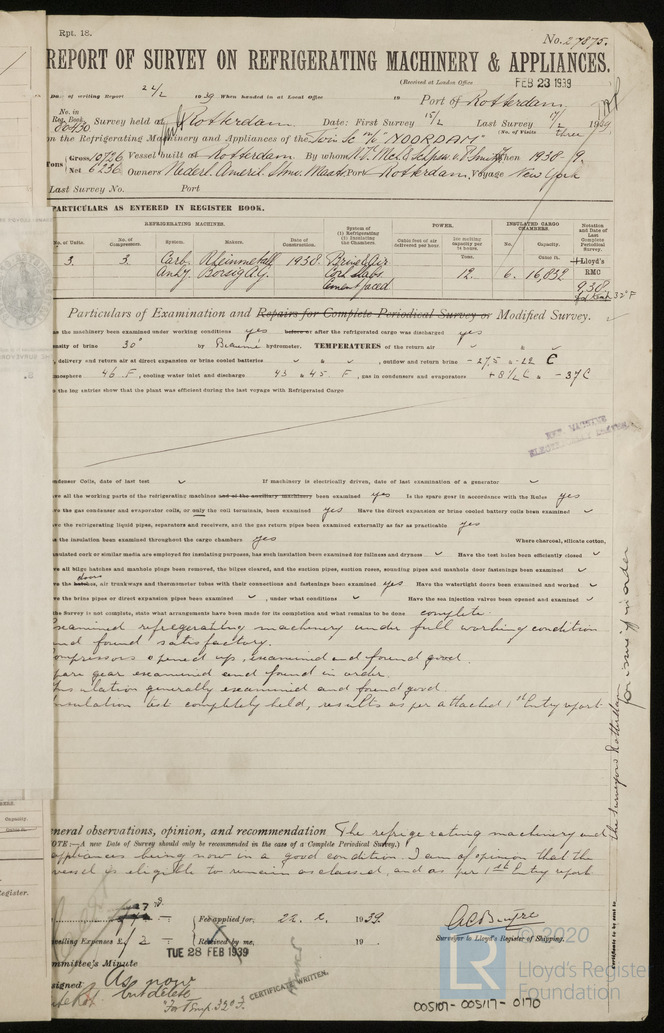 Rpt. 18.
No. 27875.
REPORT OF SURVEY ON REFRIGERATING MACHINERY & APPLIANCES.
(Received at London Office FEB 23 1939
Date of writing Report 24/2 1939 When handed in at Local Office 19 Port of Rotterdam
No. in Reg. Book. 80430 Survey held at Rotterdam Date: First Survey 15/2 Last Survey 17/2 1939
(No. of Visits three)
on the Refrigerating Machinery and Appliances of the Twin Sc M/V "NOORDAM"
Tons Gross 10726 Vessel built at Rotterdam By whom When 1938-9
Net 6236 Owners Nederl. Amerik. Maats. Port Rotterdam Voyage New York
Last Survey No. Port
PARTICULARS AS ENTERED IN REGISTER BOOK.
REFRIGERATING MACHINES. System of (1) Refrigerating (2) Insulating the Chambers. Cubic feet of air delivered per hour. POWER. Ice melting capacity per 24 hours. INSULATED CARGO CHAMBERS. Notation and Date of Last Complete Periodical Survey.
No. of Units. No. of Compressors. System. Makers. Date of Construction. Tons. No. Capacity. Cubic ft.
3 3 Carb. Rheinmetall 1938 Brine & Air Lloyd's
Anhy. Borsig A.G. Cork slabs 12. 6. 16,832 RMC
Cement faced 9.38
32°F
Particulars of Examination and Repairs for Complete Periodical Survey or Modified Survey.
as the machinery been examined under working conditions yes before or after the refrigerated cargo was discharged yes
ensity of brine 30° by Beaumé hydrometer. TEMPERATURES of the return air
, delivery and return air at direct expansion or brine cooled batteries , outflow and return brine -27.5 & -22 C
mosphere 46 F, cooling water inlet and discharge 43 & 45 F, gas in condensers and evaporators +8½ C & -37 C
o the log entries show that the plant was efficient during the last voyage with Refrigerated Cargo
ndenser Coils, date of last test If machinery is electrically driven, date of last examination of a generator
ve all the working parts of the refrigerating machines and of the auxiliary machinery been examined yes Is the spare gear in accordance with the Rules yes
ve the gas condenser and evaporator coils, or only the coil terminals, been examined yes Have the direct expansion or brine cooled battery coils been examined
ve the refrigerating liquid pipes, separators and receivers, and the gas return pipes been examined externally as far as practicable yes
s the insulation been examined throughout the cargo chambers yes Where charcoal, silicate cotton,
nsulated cork or similar media are employed for insulating purposes, has such insulation been examined for fullness and dryness Have the test holes been efficiently closed
ve all bilge hatches and manhole plugs been removed, the bilges cleared, and the suction pipes, suction roses, sounding pipes and manhole door fastenings been examined
doors
ve the hatches, air trunkways and thermometer tubes with their connections and fastenings been examined yes Have the watertight doors been examined and worked
ve the brine pipes or direct expansion pipes been examined , under what conditions Have the sea injection valves been opened and examined
the Survey is not complete, state what arrangements have been made for its completion and what remains to be done complete.
xamined refrigerating machinery under full working condition
nd found satisfactory.
ompressors opened up, examined and found good.
pare gear examined and found in order.
nsulation generally examined and found good.
nsulation test completely held, results as per attached 1st Entry report
for issue if in order
The Surveyors Rotterdam
Certificate to be sent to
eneral observations, opinion, and recommendation The refrigerating machinery and
NOTE:—A new Date of Survey should only be recommended in the case of a Complete Periodical Survey.)
appliances being now in a good condition. I am of opinion that the
vessel is eligible to remain as classed, and as per 1st Entry report
Fee applied for: 22. 2. 1939.
velling Expenses £ 2 Received by me, 19
Surveyor to Lloyd's Register of Shipping.
TUE 28 FEB 1939
ommittee's Minute
signed As now
but delete
"For Temp 32° F."
CERTIFICATE WRITTEN.
© 2020
LR
Lloyd's Register
Foundation
005107-005117-0170